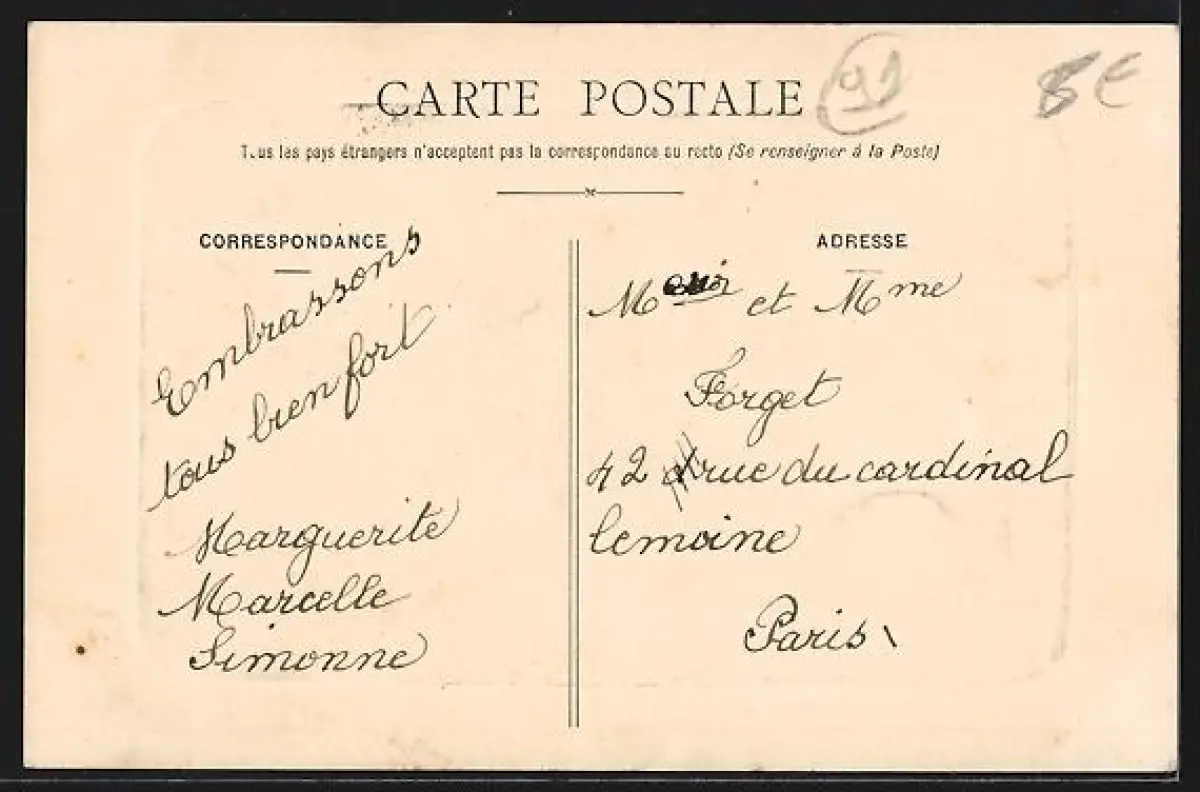 CARTE POSTALE
91
8€
Tous les pays étrangers n'acceptent pas la correspondance au recto (Se renseigner à la Poste)
CORRESPONDANCE
Embrassons
tous bien fort
Marguerite
Marcelle
Simonne
ADRESSE
et Mme
Forget
42 rue du cardinal
lemoine
Paris